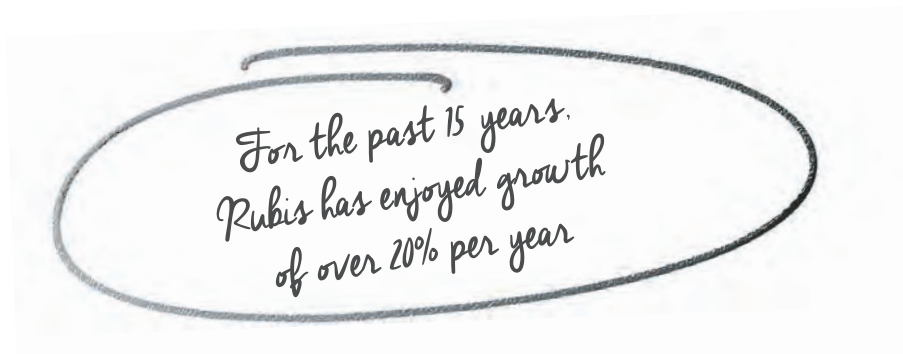 For the past 15 years,
Rubis has enjoyed growth
of over 20% per year